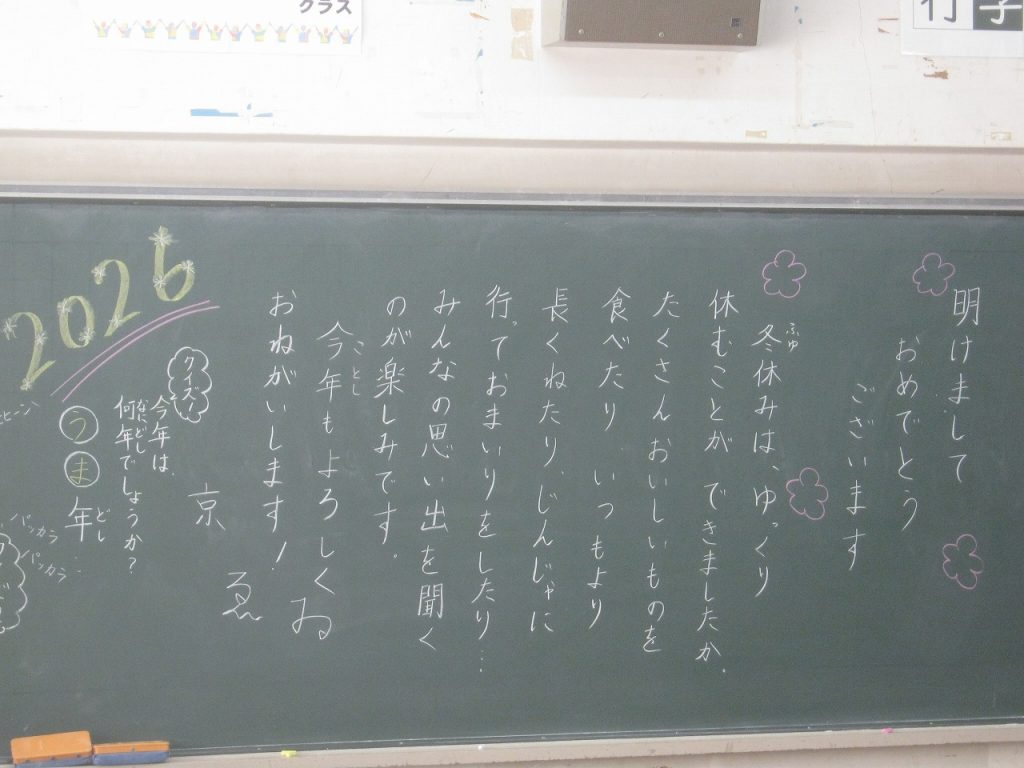 クラス
行
字
明けまして
おめでとう
ございます
冬休みは、ゆっくり
ふゆ
休むことが できましたか。
たくさんおいしいものを
食べたり いつもより
長くねたり、じんじゃに
行っておまいりをしたり…
みんなの思い出を聞く
のが楽しみです。
今年もよろしく
ことし
おねがいします!
ゐ
ゑ
京
2026
クイズ!
今年は、
何年でしょうか?
なにどし
うま年
どし
パッカラ
パッカラ…